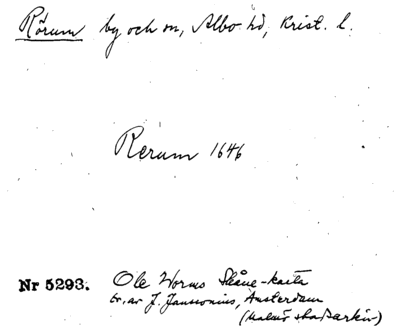 Rörum by och sn, Albo hd, Krist. l.
Rerum 1646
Nr 5293. Ole Worms Skåne-karta
tr. av J. Janssonius, Amsterdam
(Malmö stadsarkiv)